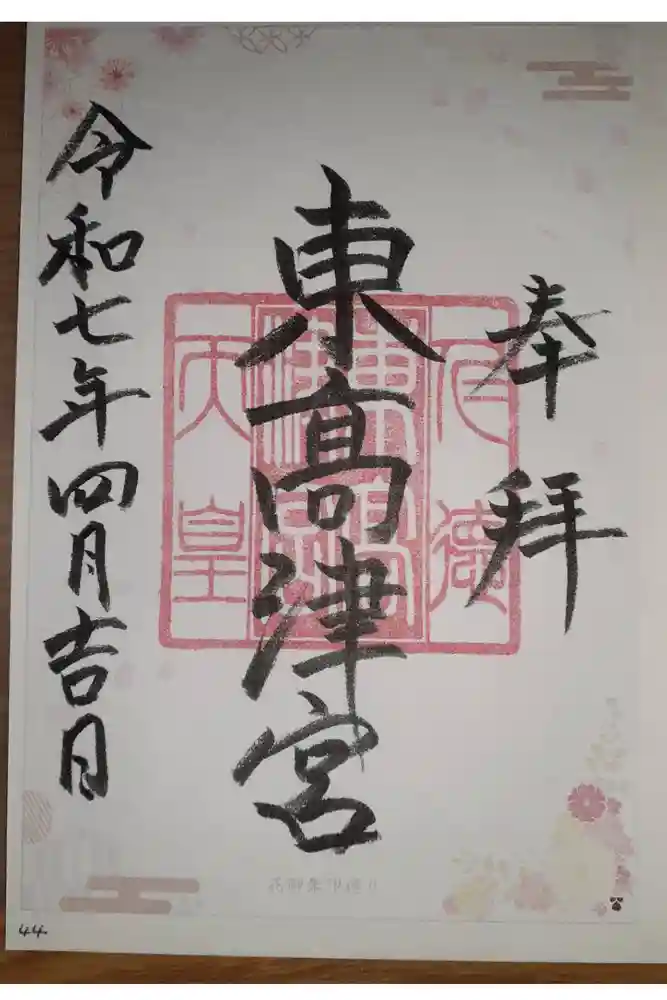 奉拝
仁徳
東高津宮
天皇
東高津宮
令和七年四月吉日
44